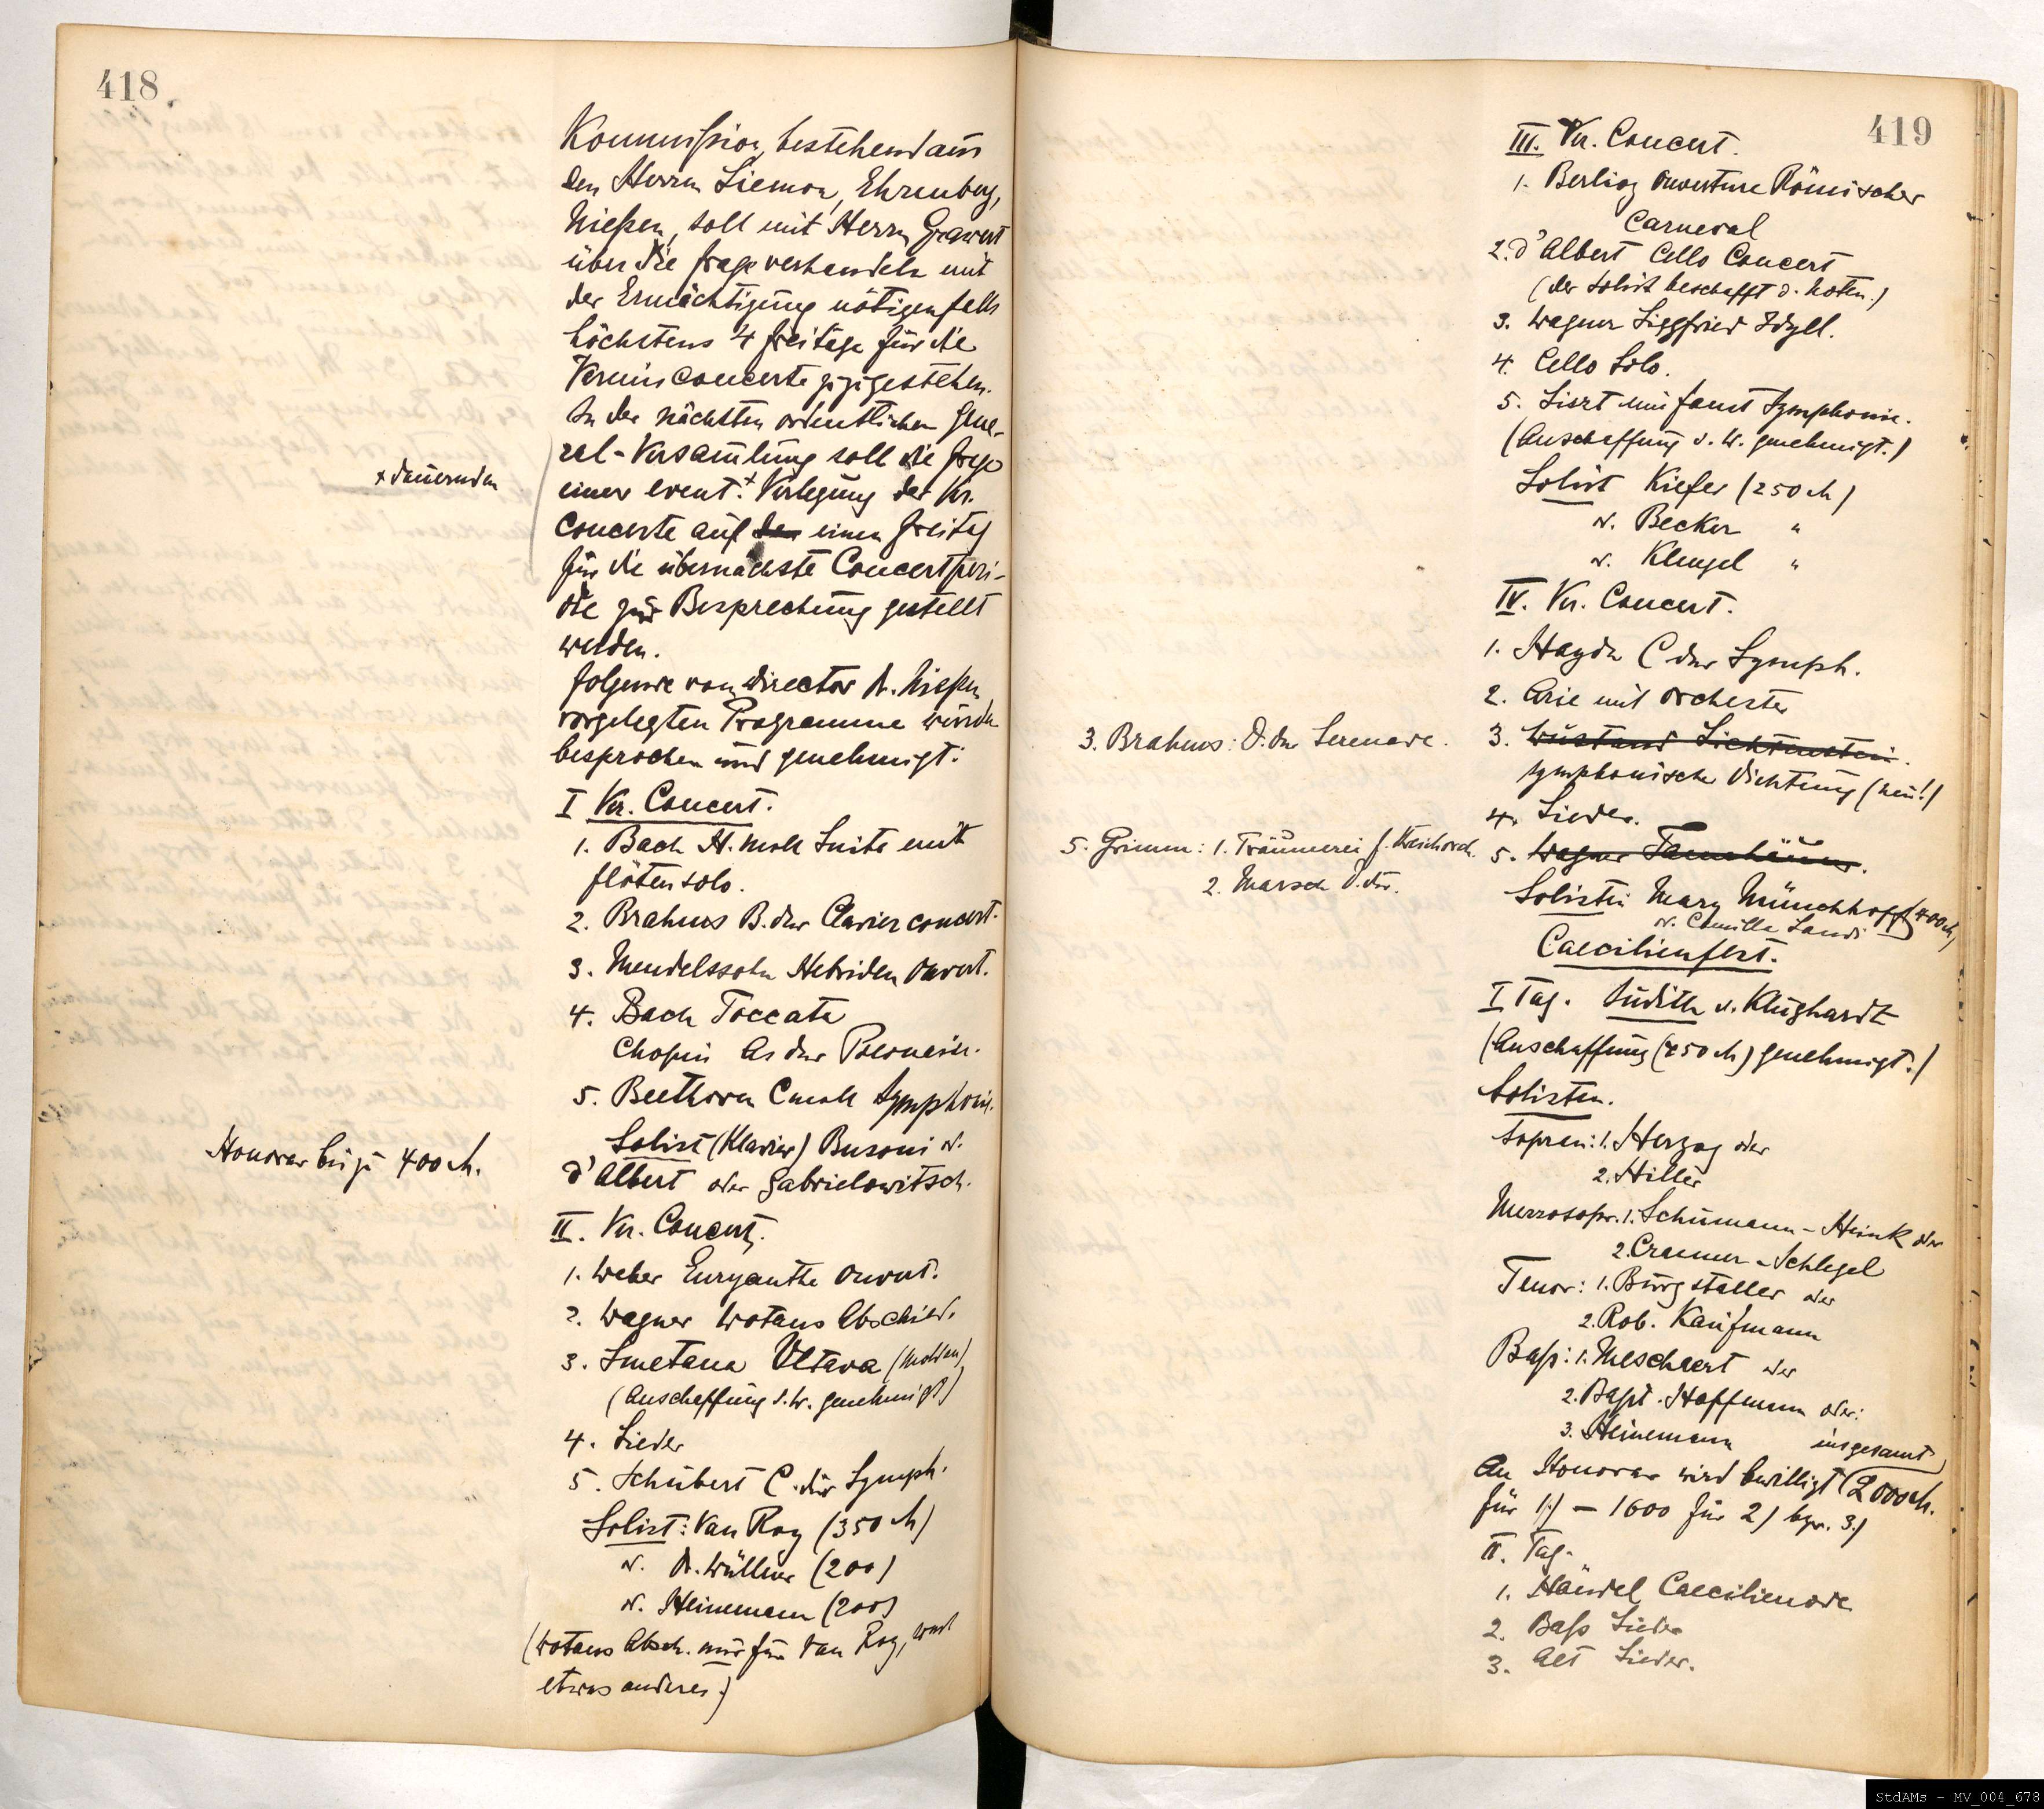 418
Kommission, bestehend aus
den Herrn Siemon, Ehrenberg,
Nießen, soll mit Herrn Grawert
über die Frage verhandeln mit
der Ermächtigung nötigenfalls
höchstens 4 Freitage für die
Vereinsconcerte zuzugestehen.
In der nächsten ordentlichen Gene-
ral-Versamlung soll die Frage
einer event. + Verlegung der Vr.
+ dauernden
Concerte auf den einen Freitag
für die übernächste Concertperi-
ode zur Besprechung gestellt
werden.
Folgende von Director Dr. Nießen
vorgelegten Programme wurden
besprochen und genehmigt:
I Vr. Concert.
1. Bach H. moll Suite mit
flötensolo.
2. Brahms B. dur Clavierconcert.
3. Mendelssohn Hebriden Ouvert.
4. Bach Toccata
Chopin As dur Polonaise.
5. Beethoven Cmoll Symphonie.
Solist (Klavier) Busoni od.
Honorar bis zu 400 M.
d'Albert oder Gabrielowitsch.
II. Vr. Concert.
1. Weber Euryanthe Ouvert.
2. Wagner Wotans Abschied.
3. Smetana Vltava (Moldau)
(Anschaffung d. W. genehmigt)
4. Lieder
5. Schubert C. dur Symph.
Solist: Van Roy (350 M)
od. Dr. Wüllner (200)
od. Heinemann (200)
(Wotans Absch. nur für van Roy, sonst
etwas anderes.)
419
III. Vr. Concert.
1. Berlioz Ouverture Römischer
Carneval
2. d'Albert Cello Concert
(der Solist beschafft d. Noten.)
3. Wagner Siegfried Idyll.
4. Cello Solo.
5. Liszt eine Faust Symphonie.
(Anschaffung d. W. genehmigt.)
Solist Kiefer (250 M)
od. Becker "
od. Klengel "
IV. Vr. Concert.
1. Haydn C dur Symph.
2. Arie mit Orchester
3. Brahms: D. dur Serenade.
3. Wüstand Lichtenstein.
symphonische Dichtung (neu!)
4. Lieder.
5. Grimm: 1. Träumerei f. Streichorch.
2. Marsch D. dur.
5. Wagner Tannhäuser.
Solistin Mary Münchhoff (400 M)
od. Camilla Landi
Caecilienfest.
I Tag. Judith v. Klughardt
(Anschaffung (250 M) genehmigt.)
Solisten.
Sopran: 1. Herzog oder
2. Hiller
Mezzosopr. 1. Schumann-Heink oder
2. Craemer-Schlegel
Tenor: 1. Burgstaller oder
2. Rob. Kaufmann
Baß: 1. Meschaert oder
2. Bapt. Hoffmann oder:
3. Heinemann insgesamt
An Honorar wird bewilligt 2000 M.
für 1.) - 1600 für 2) bzw. 3.)
II. Tag.
1. Händel Caecilienode
2. Baß Lieder
3. Alt Lieder.
StdAMs - MV_004_678